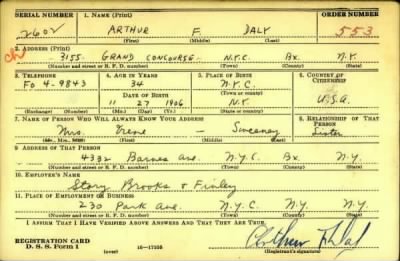 SERIAL NUMBER 1. NAME (Print) ORDER NUMBER
2602 ARTHUR F. DALY 553
(First) (Middle) (Last)
2. ADDRESS (Print)
3155 GRAND CONCOURSE - N.Y.C. Bx. N.Y.
(Number and street or R. F. D. number) (Town) (County) (State)
3. TELEPHONE 4. AGE IN YEARS 5. PLACE OF BIRTH 6. COUNTRY OF CITIZENSHIP
Fo 4-9843 34 N.Y.C.
(Town or county)
DATE OF BIRTH
11 27 1906 N.Y. U.S.A.
(Exchange) (Number) (Mo.) (Day) (Yr.) (State or country)
7. NAME OF PERSON WHO WILL ALWAYS KNOW YOUR ADDRESS 8. RELATIONSHIP OF THAT PERSON
Mrs. Irene - Sweeney Sister
(Mr., Mrs., Miss) (First) (Middle) (Last)
9. ADDRESS OF THAT PERSON
4332 Barnes Ave. N.Y.C. Bx. N.Y.
(Number and street or R. F. D. number) (Town) (County) (State)
10. EMPLOYER'S NAME
Story Brooks & Finley
11. PLACE OF EMPLOYMENT OR BUSINESS
230 Park Ave. N.Y.C. N.Y. N.Y.
(Number and street or R. F. D. number) (Town) (County) (State)
I AFFIRM THAT I HAVE VERIFIED ABOVE ANSWERS AND THAT THEY ARE TRUE.
REGISTRATION CARD
D. S. S. Form 1 (over) 16-17105 Arthur F Daly
(Registrant's signature)